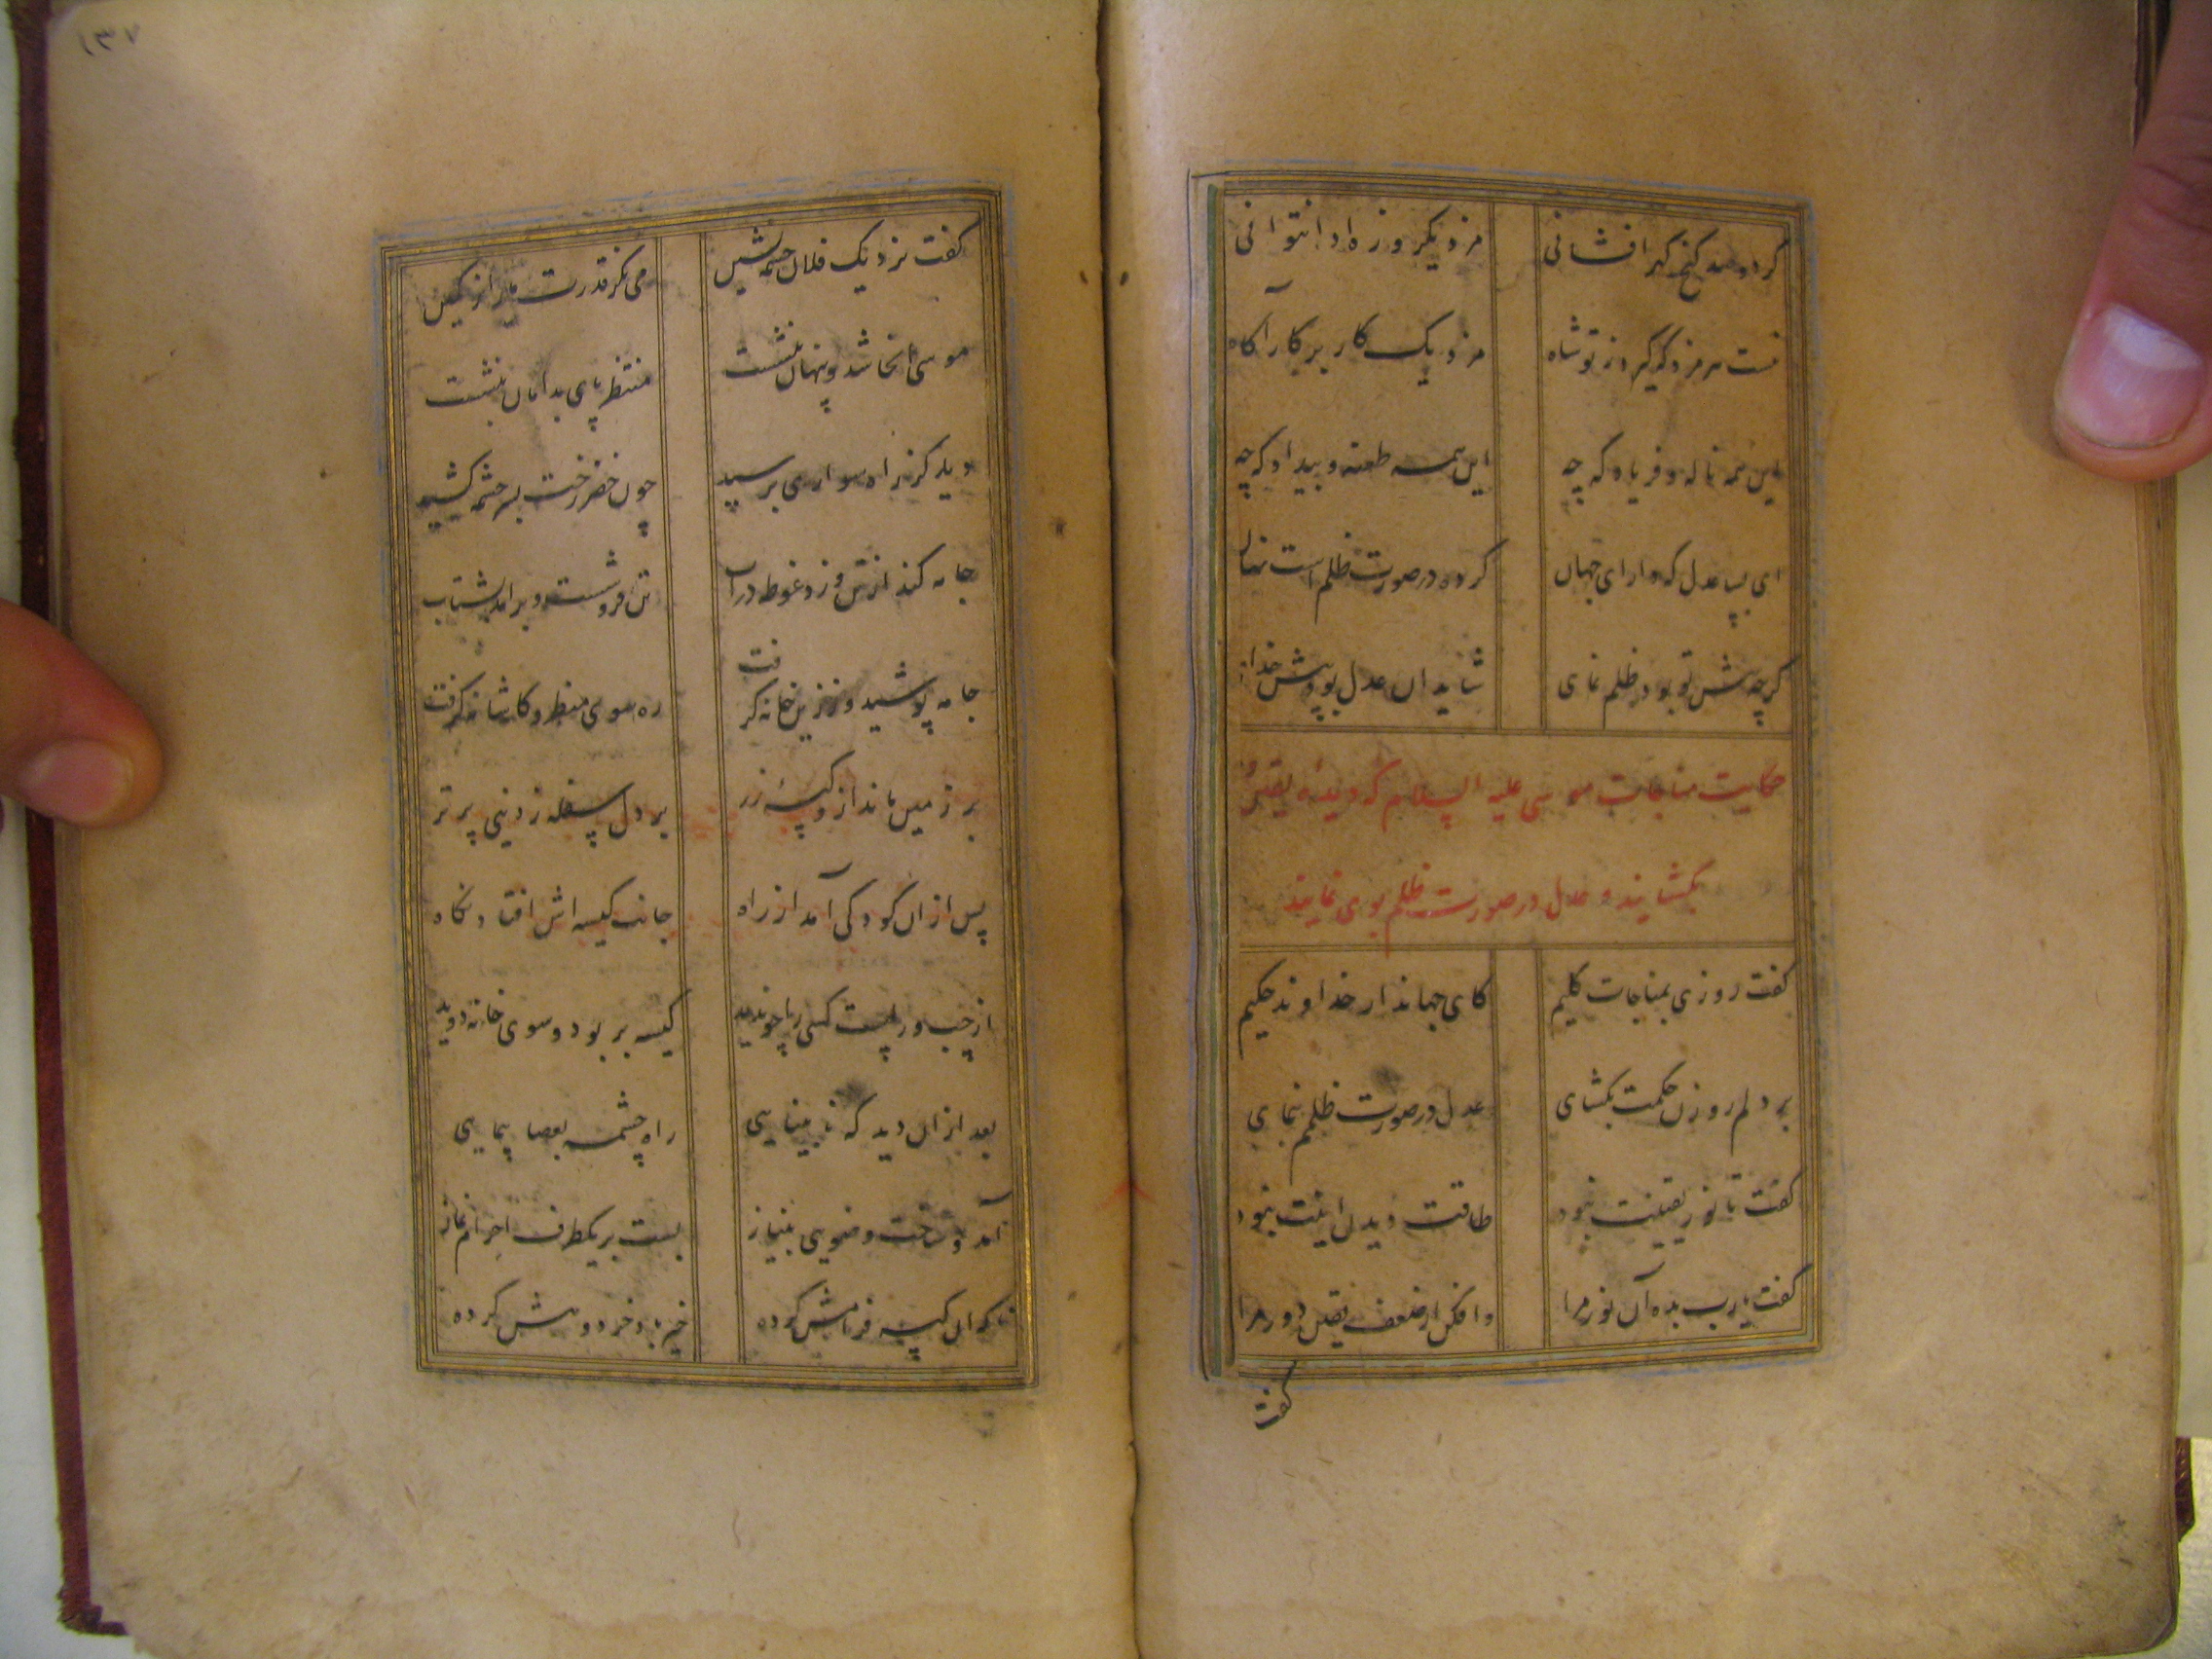 گر دو صد گنج گهر افشانی مزد یکروزه او نتوانی
نست مزد گر گیرد ز تو شاه مزد یک کار بر کار آگاه
این همه ناله و فریاد که چه این همه طعنه و بیداد که چه
ای بسا عدل که دارای جهان کرده در صورت ظلم است نهان
گرچه پیش تو بود ظلم نمای شاید آن عدل بود پیش خدای
حکایت مناجات موسی علیه السلام که دیده یقین او
بگشایند و عدل در صورت ظلم بوی نمایند
گفت روزی بمناجات کلیم کای جهاندار خداوند حکیم
بر دلم روزن حکمت بگشای عدل در صورت ظلمم بنمای
گفت تا نور یقینت نبود طاقت دیدن اینت نبود
گفت یارب بده آن نور مرا وافکن از ضعف یقین دور مرا
گفت
۱۳۷
گفت نزدیک فلان چشمه نشین می نگر قدرت ما را ز کمین
موسی آنجا شد و پنهان بنشست منتظر پای بدامان بنشست
دید کز راه سواری برسید چون خضر رخت بسر چشمه کشید
جامه کند از تن و زد غوطه در آب تن فرو شست و بر آمد بشتاب
جامه پوشید و ززین خانه گرفت ره سوی منظر و کاشانه گرفت
بر زمین ماند ازو کیسه زر بر دل سفله ز دنیی پر تر
پس از آن کودکی آمد از راه جانب کیسه اش افتاد نگاه
از چپ و راست کسی را چو ندید کیسه بر بود و سوی خانه دوید
بعد از آن دید که نابینایی راه چشمه بعصا پیمایی
آمد و ساخت وضویی بنیاز بست بر یکطرف احرام نماز
ناگه آن کیسه فرامش کرده خیرباد خرد و هش کرده